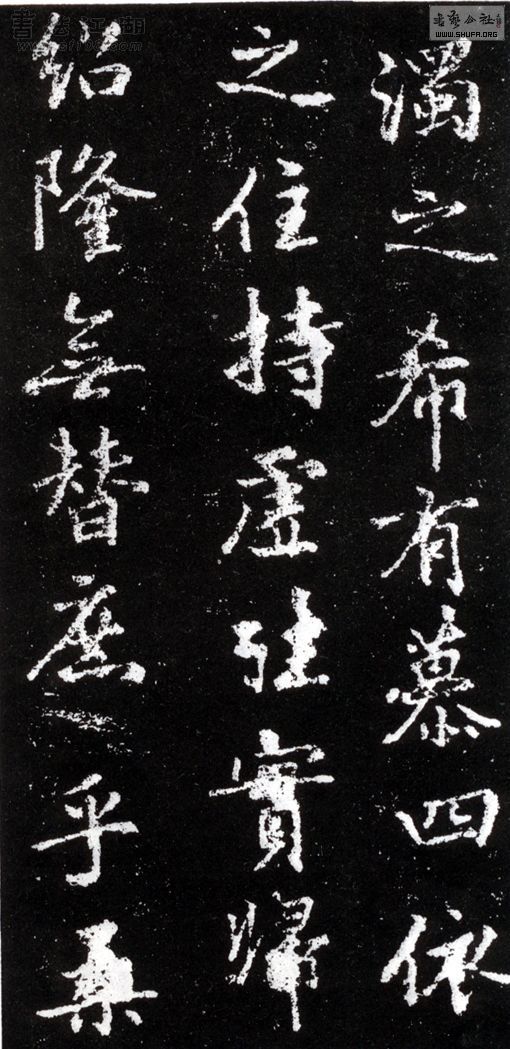 濁之希有慕四依
之住持虛往實歸
紹隆無替庶乎桑
書藝公社
WWW.SHUFA.ORG
書法江湖